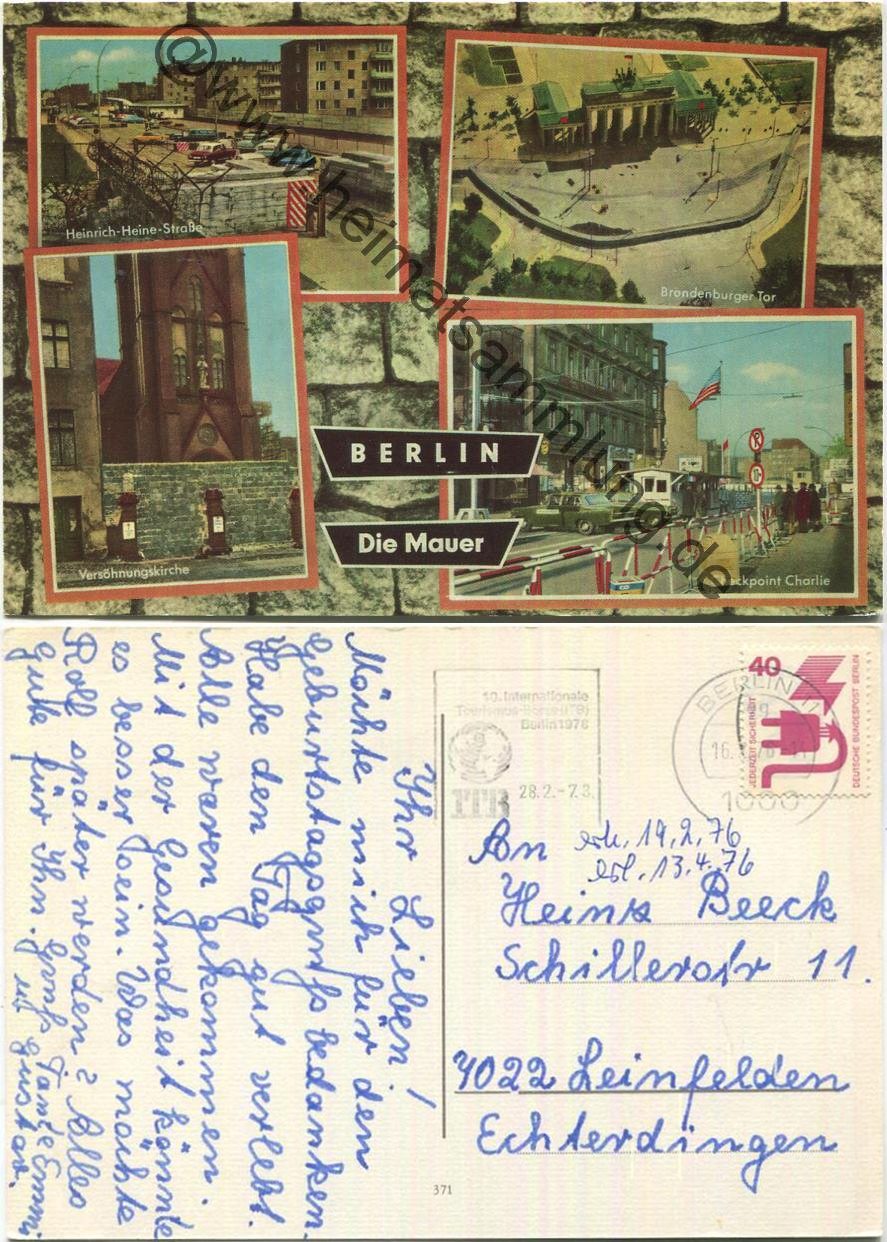 Heinrich-Heine-Straße
Brandenburger Tor
Versöhnungskirche
BERLIN
Die Mauer
ckpoint Charlie
@www.heimatsammlung.de
Ihr Lieben!
Möchte mich für den
Geburtstagsgruß bedanken.
Habe den Tag gut verlebt.
Alle waren gekommen.
Mit der Gesundheit könnte
es besser sein. Was möchte
Rolf später werden? Alles
Gute für Ihn. Gruß Tante Emmi
u. Gustav.
10. Internationale
Tourismus-Börse (ITB)
Berlin 1976
ITB
28.2.-7.3.
BERLIN 11
1000
40
JEDERZEIT SICHERHEIT
DEUTSCHE BUNDESPOST BERLIN
An
erh. 19.2.76
erl. 13.4.76
Heinz Beeck
Schillerstr 11.
7022 Leinfelden
Echterdingen
371